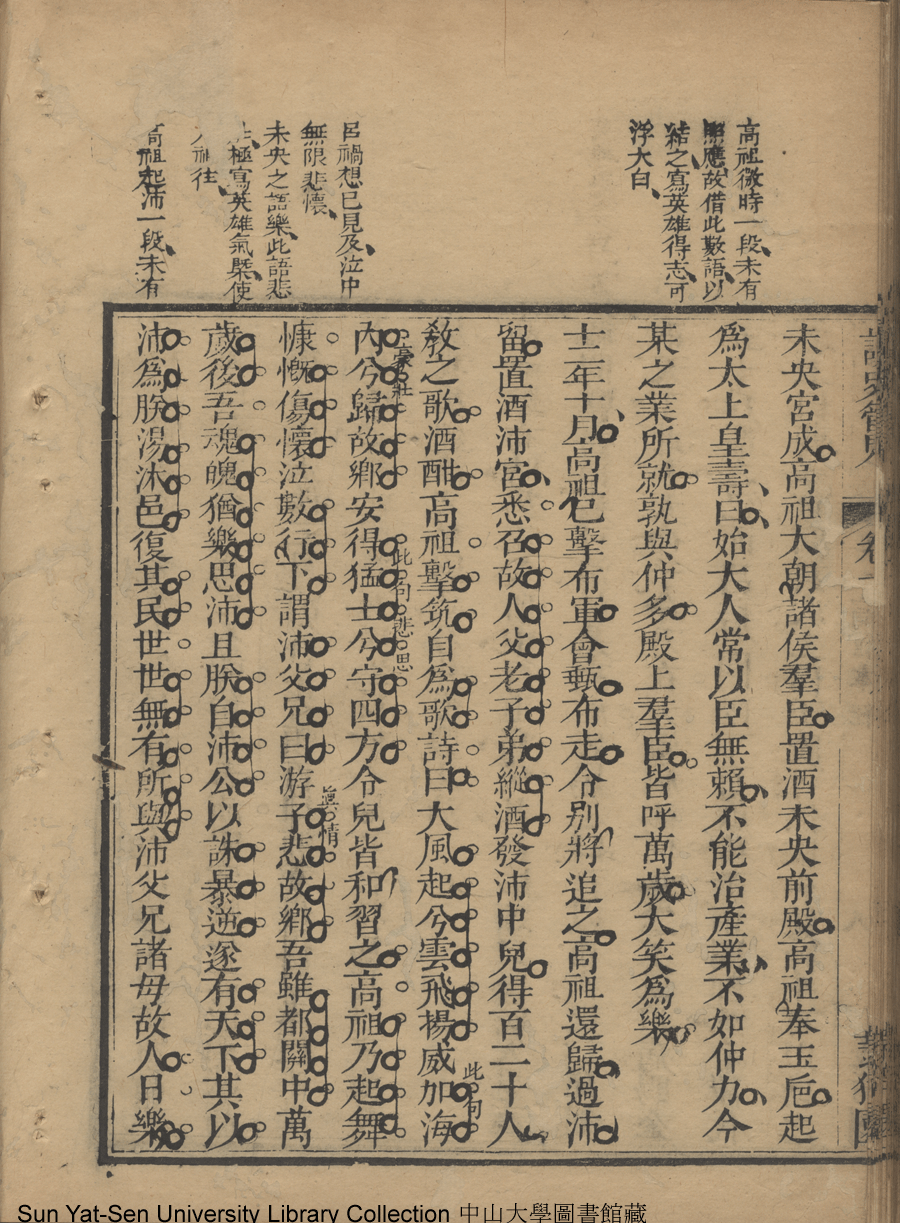 高祖微時一段未有
照應故借此數語以
結之寫英雄得志可
浮大白
呂禍想已見及泣中
無限悲懷
未央之語樂此語悲
極寫英雄氣槩使
往
高祖起沛一段未有
卷
未央宮成高祖大朝諸侯羣臣置酒未央前殿高祖奉玉巵起
爲太上皇壽曰始大人常以臣無賴不能治產業不如仲力今
某之業所就孰與仲多殿上羣臣皆呼萬歲大笑爲樂
十二年十月高祖已擊布軍會甀布走令別將追之高祖還歸過沛
留置酒沛宮悉召故人父老子弟縱酒發沛中兒得百二十人
教之歌酒酣高祖擊筑自爲歌詩曰大風起兮雲飛揚威加海
此句
豪壯
內兮歸故鄉安得猛士兮守四方令兒皆和習之高祖乃起舞
此句悲思
慷慨傷懷泣數行下謂沛父兄曰游子悲故鄉吾雖都關中萬
眞情
歲後吾魂魄猶樂思沛且朕自沛公以誅暴逆遂有天下其以
沛爲朕湯沐邑復其民世世無有所與沛父兄諸母故人日樂
Sun Yat-Sen University Library Collection 中山大學圖書館藏